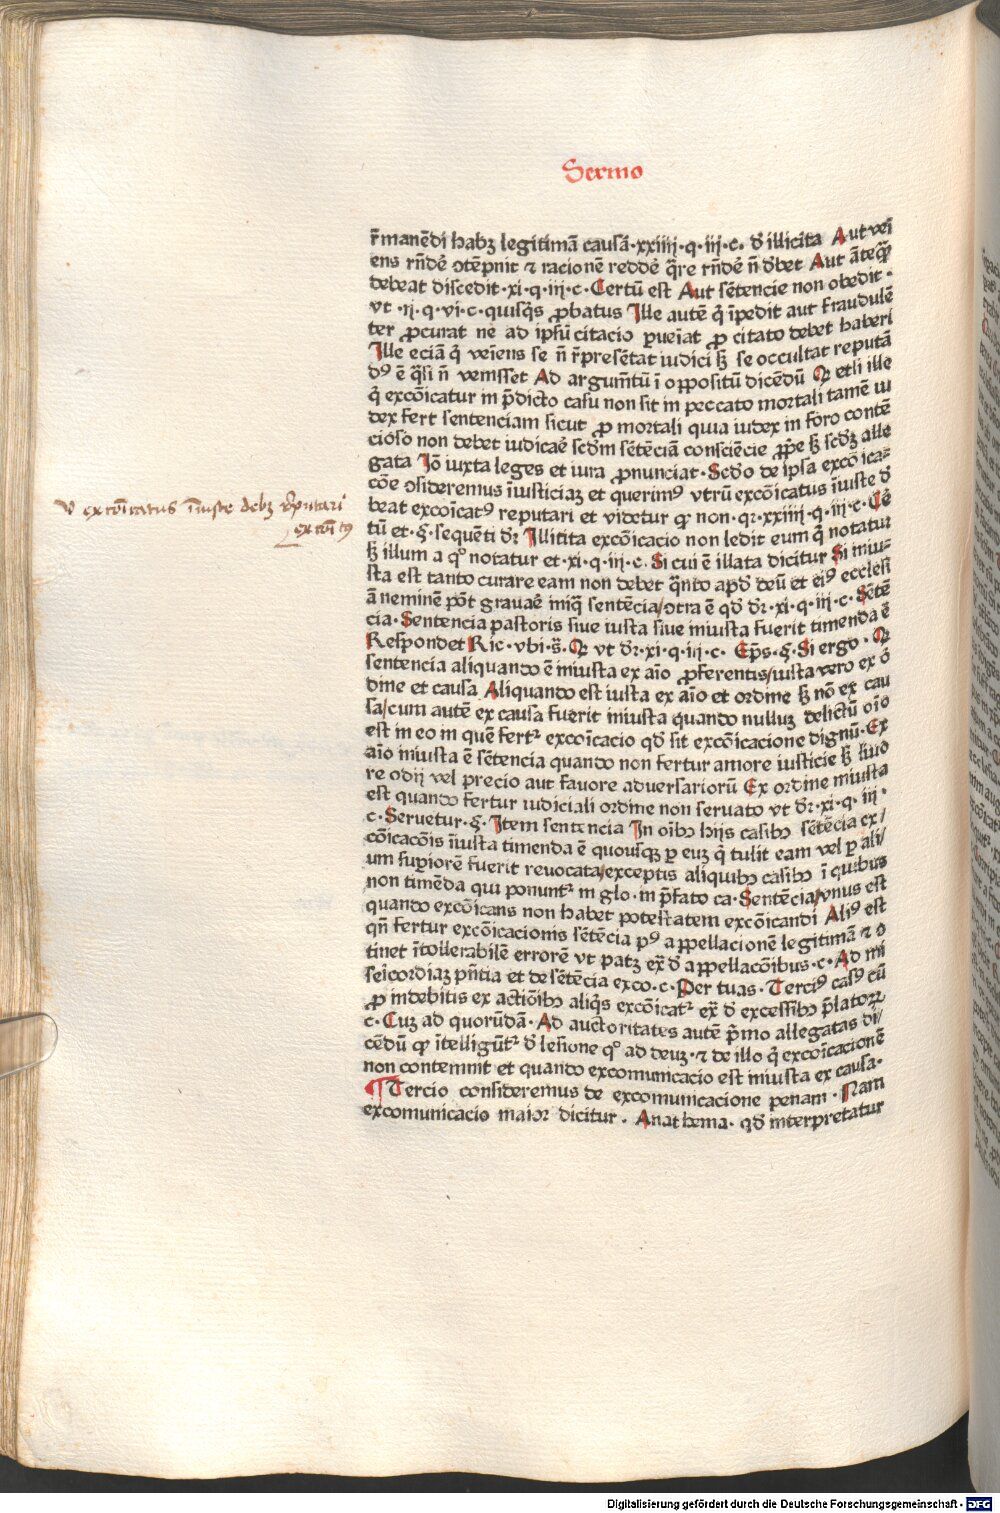 Sermo
r̃manẽdi habꝫ legitimã causã·xxiiij·q·iij·c· đ illicita Aut vei
ens rñdẽ ↄtẽpnit ⁊ racionẽ reddẽ q̃re rñdẽ ñ đbet Aut ãteq̃ꝫ
debeat discedit·xi·q·iij·c·Certũ est Aut sẽtencie non obedit·
vt ·ij·q·vi·c·quisq̃s ꝓbatus Ille autẽ q̃ ĩpedit aut fraudulẽ
ter ꝓcurat ne ad ipsũ citacio ꝑueĩat ꝓ citato debet haberi
Ille eciã q̃ veĩens se ñ r̃presẽtat iudici sꝫ se occultat reputã
dꝰ ẽ q̃si ñ venisset Ad argumẽtũ ĩ oppositũ dicẽdũ Ꝙ etsi ille
q̃ excõicatur in p̃dicto casu non sit in peccato mortali tamẽ iu
dex fert sentenciam sicut ꝓ mortali quia iudex in foro contẽ
cioso non debet iudicaẽ scđm sẽtẽciã consciẽcie ꝓp̃e sꝫ scđꝫ alle
gata Iõ iuxta leges et iura ꝓnunciat·Scđo de ipsa excõica⸗
cõe ↄsideremus ĩiusticiaꝫ et querimꝰ vtrũ excõicatus ĩiuste đ
beat excoĩcatꝰ reputari et videtur ꝙ non·qꝛ·xxiiij·q·iij·c·Cẽ
tũ et·§·sequẽti đꝛ Illitita excõicacio non ledit eum q̃ notatur
sꝫ illum a qº notatur et·xi·q·iij·c·Si cui ẽ illata dicitur Si iniu⸗
sta est tanto curare eam non debet q̃nto apđ deũ et eiꝰ ecclesi
ã neminẽ põt grauaẽ iniq̃ sentẽcia/ↄtra ẽ qđ đꝛ·xi·q·iij·c·Sẽtẽ
cia·Sentencia pastoris siue iusta siue iniusta fuerit timenda ẽ
Respondet Ric·vbi·s̃·Ꝙ vt đꝛ·xi·q·iij·c· Ep̃s·§·Si ergo·Ꝙ
sentencia aliquando ẽ iniusta ex aĩo ꝓferentis/iusta vero ex õ
dine et causa Aliquando est iusta ex aĩo et ordine sꝫ nõ ex cau
sa/cum autẽ ex causa fuerit iniusta quando nulluꝫ delictũ oĩo
est in eo in quẽ fertꝛ excoĩcacio qđ sit excõicacione dignũ·Ex
aĩo iniusta ẽ sẽtencia quando non fertur amore iusticie sꝫ liuo
re odij vel precio aut fauore aduersariorũ Ex ordine iniusta
est quando fertur iudiciali ordine non seruato vt đꝛ·xi·q·iij·
c·Seruetur·§·Item sentencia In oĩbꝫ hijs casibꝫ sẽtẽcia ex/
cõicacõis ĩiusta timenda ẽ quousqꝫ ꝑ euꝫ q̃ tulit eam vel ꝑ ali/
um suꝑiorẽ fuerit reuocata/exceptis aliquibꝫ casibꝫ ĩ quibus
non timẽda qui ponuntꝛ in glo·in p̃fato ca·Sentẽcia/vnus est
quando excõicans non habet potestatem excõicandi Aliꝰ est
qñ fertur excõicacionis sẽtẽcia pꝰ appellacionẽ legitimã ⁊ ↄ
tinet ĩtollerabilẽ errorẽ vt patꝫ ex̃ đ appellacõibus·c·Ad mi
seĩcordiaꝫ pñtia et de sẽtẽcia exco·c·Per tuas·Terciꝰ casꝰ cũ
ꝓ indebitis ex actiõibꝫ aliq̃s excõicatꝛ ex̃ đ excessibꝫ p̃latoꝝ
c·Cuꝫ ad quorũdã·Ad auctoritates autẽ p̃mo allegatas di/
cẽdũ ꝙ ĩtelligũtꝛ đ lesione qº ad deuꝫ·⁊ de illo q̃ excoĩcacionẽ
non contemnit et quando excomunicacio est iniusta ex causa·
¶Tercio consideremus de excomunicacione penam·Nam
excomunicacio maior dicitur·Anathema·qđ interpretatur
v̾ excoĩcatus ĩniuste debꝫ reputari
excoĩctꝰ
Digitalisierung gefördert durch die Deutsche Forschungsgemeinschaft - DFG